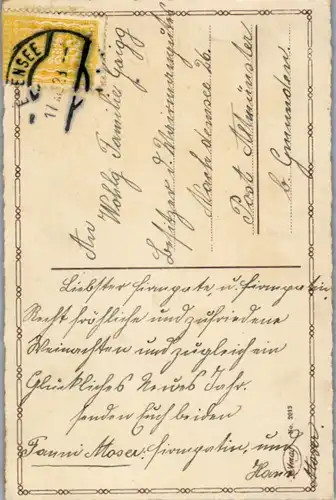 ENSEE
17
An
Wohlg Familie Gaigg
Besitzer
Nachdemsee 26.
Post Altmünster
b. Gmunden.
Liebster Firmpate u. Firmpatin,
Recht fröhliche und zufriedene
Weinachten und zugleich ein
Glückliches Neues Jahr.
senden Euch beiden
Fanni Moser, Firmpatin, und
Hans Moser
No. 2013